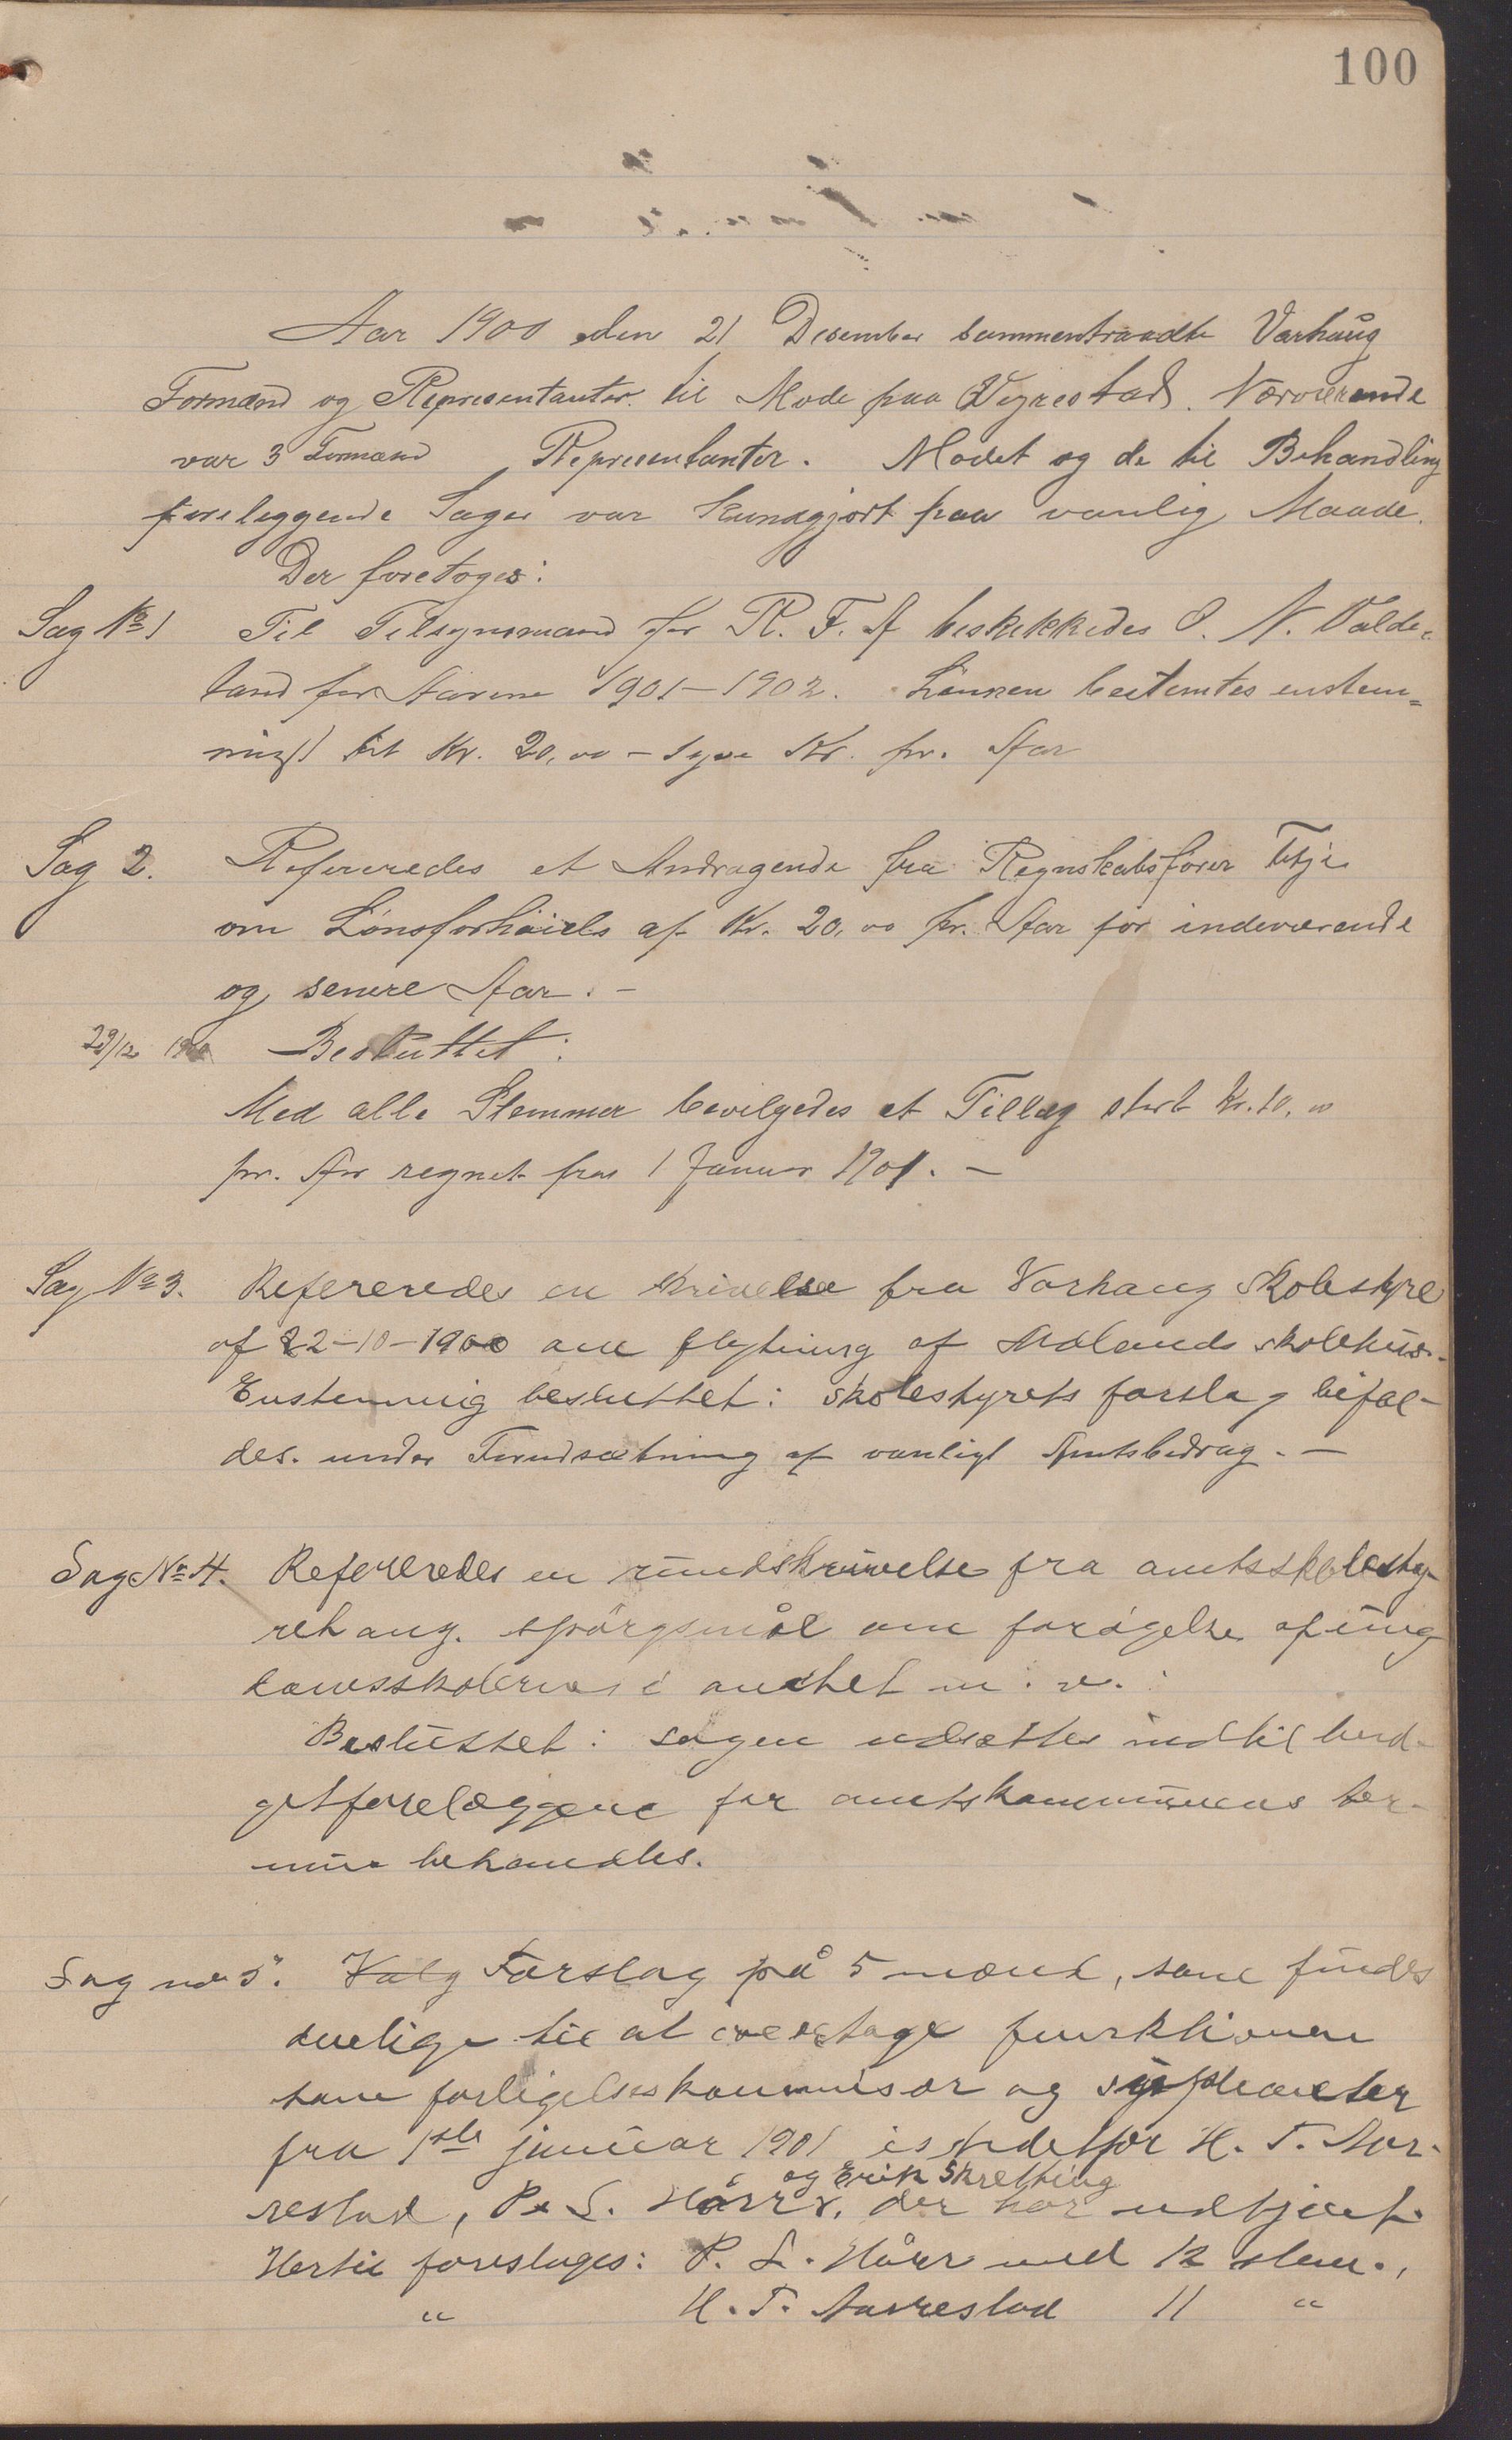 100
Aar 1900 den 21 Desember sammentraadte Varhaug
Formænd og Representanter til Møde paa Vigrestad. Nærværende
var 3 Formænd Representanter. Mødet og de til Behandling
foreliggende Sager var kundgjort paa vanlig Maade.
Der foretoges:
Sag No 1 Til Tilsynsmand for R. F. A beskikkedes O. N. Valde-
land for Aarene 1901-1902. Lønnen bestemtes enstem-
migt til Kr. 20,00 - tyve Kr. pr. Aar
Sag 2. Refereredes et Andragende fra Regnskabsfører Tetje
om Lønsforhøiels af Kr. 20,00 pr. Aar for indeværende
og senere Aar. -
29/12 1900 Besluttet:
Med alle Stemmer bevilgedes et Tillæg stort Kr. 10,00
pr. Aar regnet fra 1 Januar 1901. -
Sag No 3. Refereredes en skrivelse fra Varhaug skolestyre
af 22-10-1900 om flytning af skolehus.
Enstemmig besluttet: skolestyrets forslag bifal-
des. under Forudsætning af vanligt Amtsbidrag. -
Sag No 4. Refereredes en rundskrivelse fra amtsskolesty-
ret ang. spörgsmål om forøgelse af ung
domsskolerne i amtet m. v. :
Besluttet: sagen udsættes indtil bud-
getforelæggene for amtskommunens ter-
min behandles.
Sag no 5. Valg Forslag på 5 mænd, som findes
duelige til at overtage funktionen
som forligelseskommisær og suppleanter
fra 1ste januar 1901 istedetfor H. T. Aar-
og Erik Skretting
restad, P. L. Hårr, der har udtjent.
Hertil foresloges: P. L. Hårr med 12 stem.,
" H. T. Aarrestad 11 "